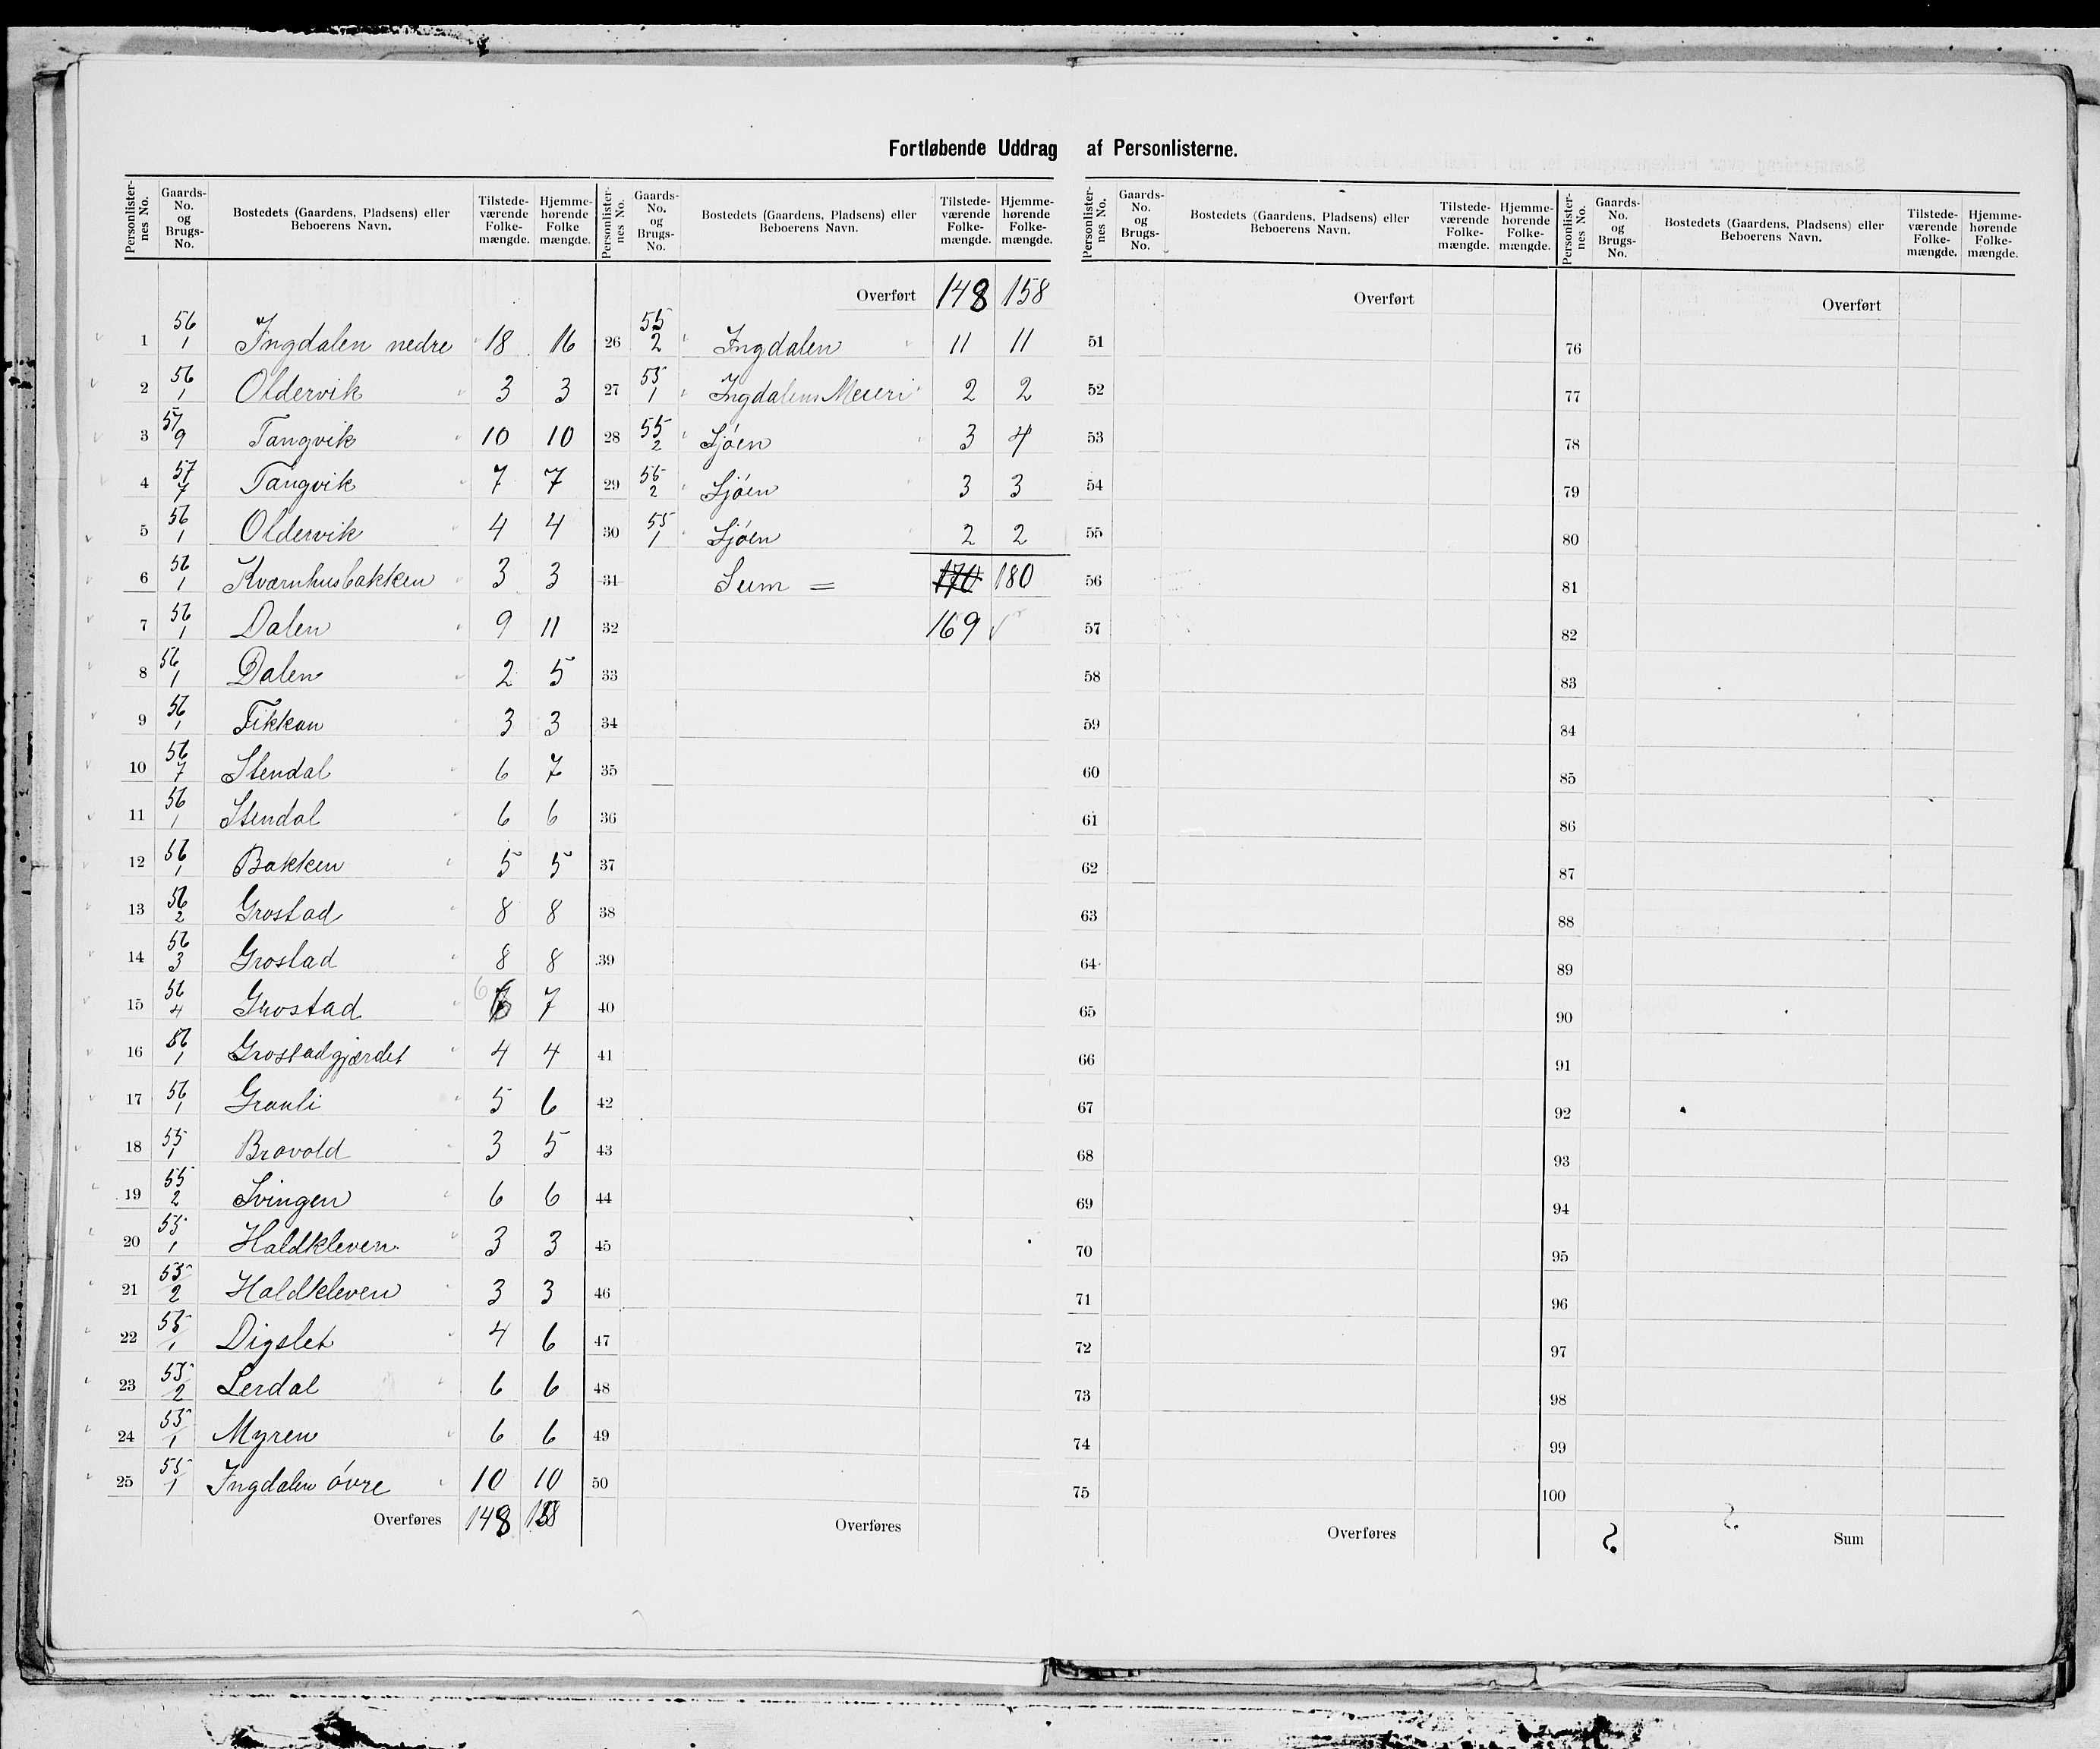 Fortløbende Uddrag af Personlisterne.
Personlister-nes No. | Gaards-No. og Brugs-No. | Bostedets (Gaardens, Pladsens) eller Beboerens Navn. | Tilstede-værende Folke-mængde. | Hjemme-hørende Folke mængde.
1 56/1 Ingdalen nedre 18 16
2 56/1 Oldervik 3 3
3 57/9 Tangvik 10 10
4 57/7 Tangvik 7 7
5 56/1 Oldervik 4 4
6 56/1 Kværnhusbakken 3 3
7 56/1 Dalen 9 11
8 56/1 Dalen 2 5
9 56/1 Fikkan 3 3
10 56/7 Stendal 6 7
11 56/1 Stendal 6 6
12 56/1 Bakken 5 5
13 56/2 Grostad 8 8
14 56/3 Grostad 8 8
15 56/4 Grostad 6 7
16 56/1 Grostadgjærdet 4 4
17 56/1 Granli 5 6
18 55/1 Bravold 3 5
19 55/2 Svingen 6 6
20 55/1 Haldkleven 3 3
21 55/2 Haldkleven 3 3
22 55/1 Digslet 4 6
23 55/2 Lerdal 6 6
24 55/1 Myren 6 6
25 55/1 Ingdalen óvre 10 10
Overføres 148 158
Personlister-nes No. | Gaards-No. og Brugs-No. | Bostedets (Gaardens, Pladsens) eller Beboerens Navn. | Tilstede-værende Folke-mængde. | Hjemme-hørende Folke-mængde.
Overført 148 158
26 55/2 Ingdalen 11 11
27 55/1 Ingdalens Meieri 2 2
28 55/2 Sjóen 3 4
29 55/2 Sjóen 3 3
30 55/1 Sjóen 2 2
31 Sum = 170 180
32 169
33
34
35
36
37
38
39
40
41
42
43
44
45
46
47
48
49
50
Overføres
Personlister-nes No. | Gaards-No. og Brugs-No. | Bostedets (Gaardens, Pladsens) eller Beboerens Navn. | Tilstede-værende Folke-mængde. | Hjemme-hørende Folke-mængde.
Overført
51
52
53
54
55
56
57
58
59
60
61
62
63
64
65
66
67
68
69
70
71
72
73
74
75
Overføres
Personlister-nes No. | Gaards-No. og Brugs-No. | Bostedets (Gaardens, Pladsens) eller Beboerens Navn. | Tilstede-værende Folke-mængde. | Hjemme-hørende Folke-mængde.
Overført
76
77
78
79
80
81
82
83
84
85
86
87
88
89
90
91
92
93
94
95
96
97
98
99
100
Sum